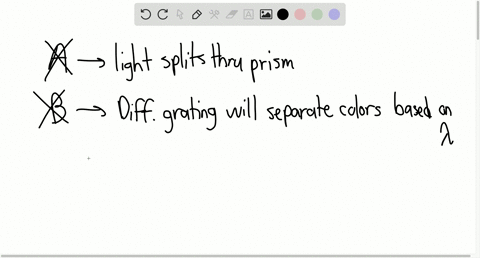 A → light splits thru prism
B → Diff. grating will separate colors based on
λ